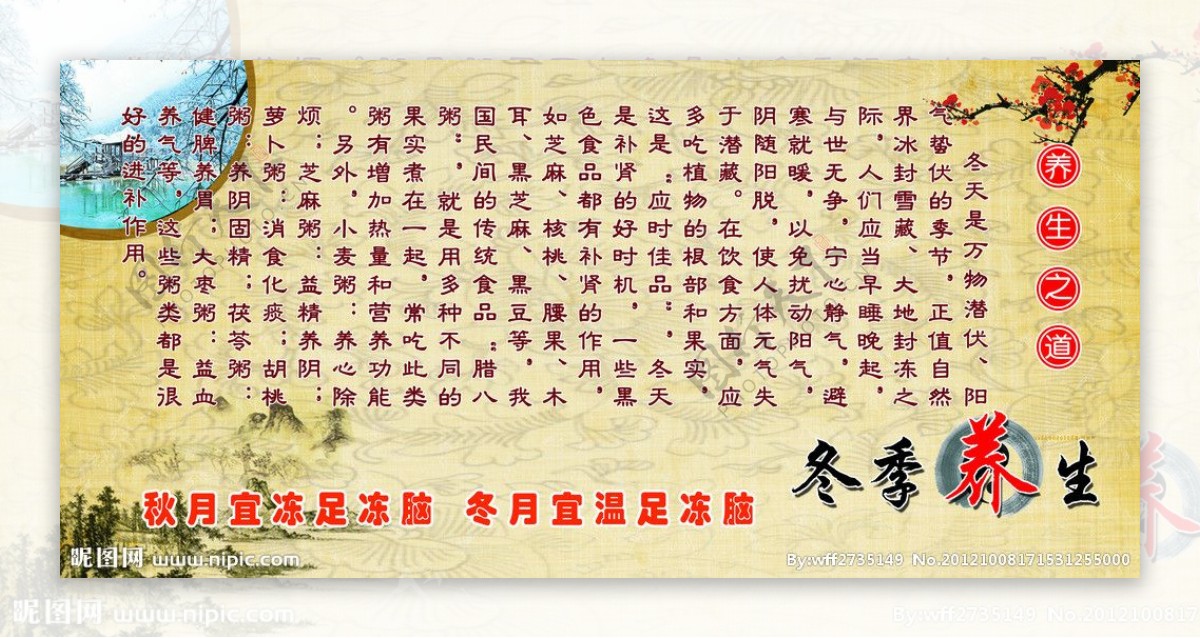 养生之道
冬天是万物潜伏、阳
气蛰伏的季节，正值自然
界冰封雪藏、大地封冻之
际，人们应当早睡晚起，
与世无争，宁心静气，避
寒就暖，以免扰动阳气，
阴随阳脱，使人体元气失
于潜藏。在饮食方面，应
多吃植物的根部和果实，
这是“应时佳品”。冬天
是补肾的好时机，一些黑
色食品都有补肾的作用，
如芝麻、核桃、腰果、木
耳、黑芝麻、黑豆等，我
国民间的传统食品“腊八
粥”，就是用多种不同的
果实煮在一起，常吃此类
粥有增加热量和营养功能
。另外，小麦粥：养心除
烦；芝麻粥：益精养阴；
萝卜粥：消食化痰；胡桃
粥：养阴固精；茯苓粥：
健脾养胃；大枣粥：益血
养气等，这些粥类都是很
好的进补作用。
冬季养生
秋月宜冻足冻脑 冬月宜温足冻脑
昵图网 www.nipic.com
By:wff2735149 No.20121008171531255000
昵图网 www.nipic.com
By:wff2735149 No.2012100817